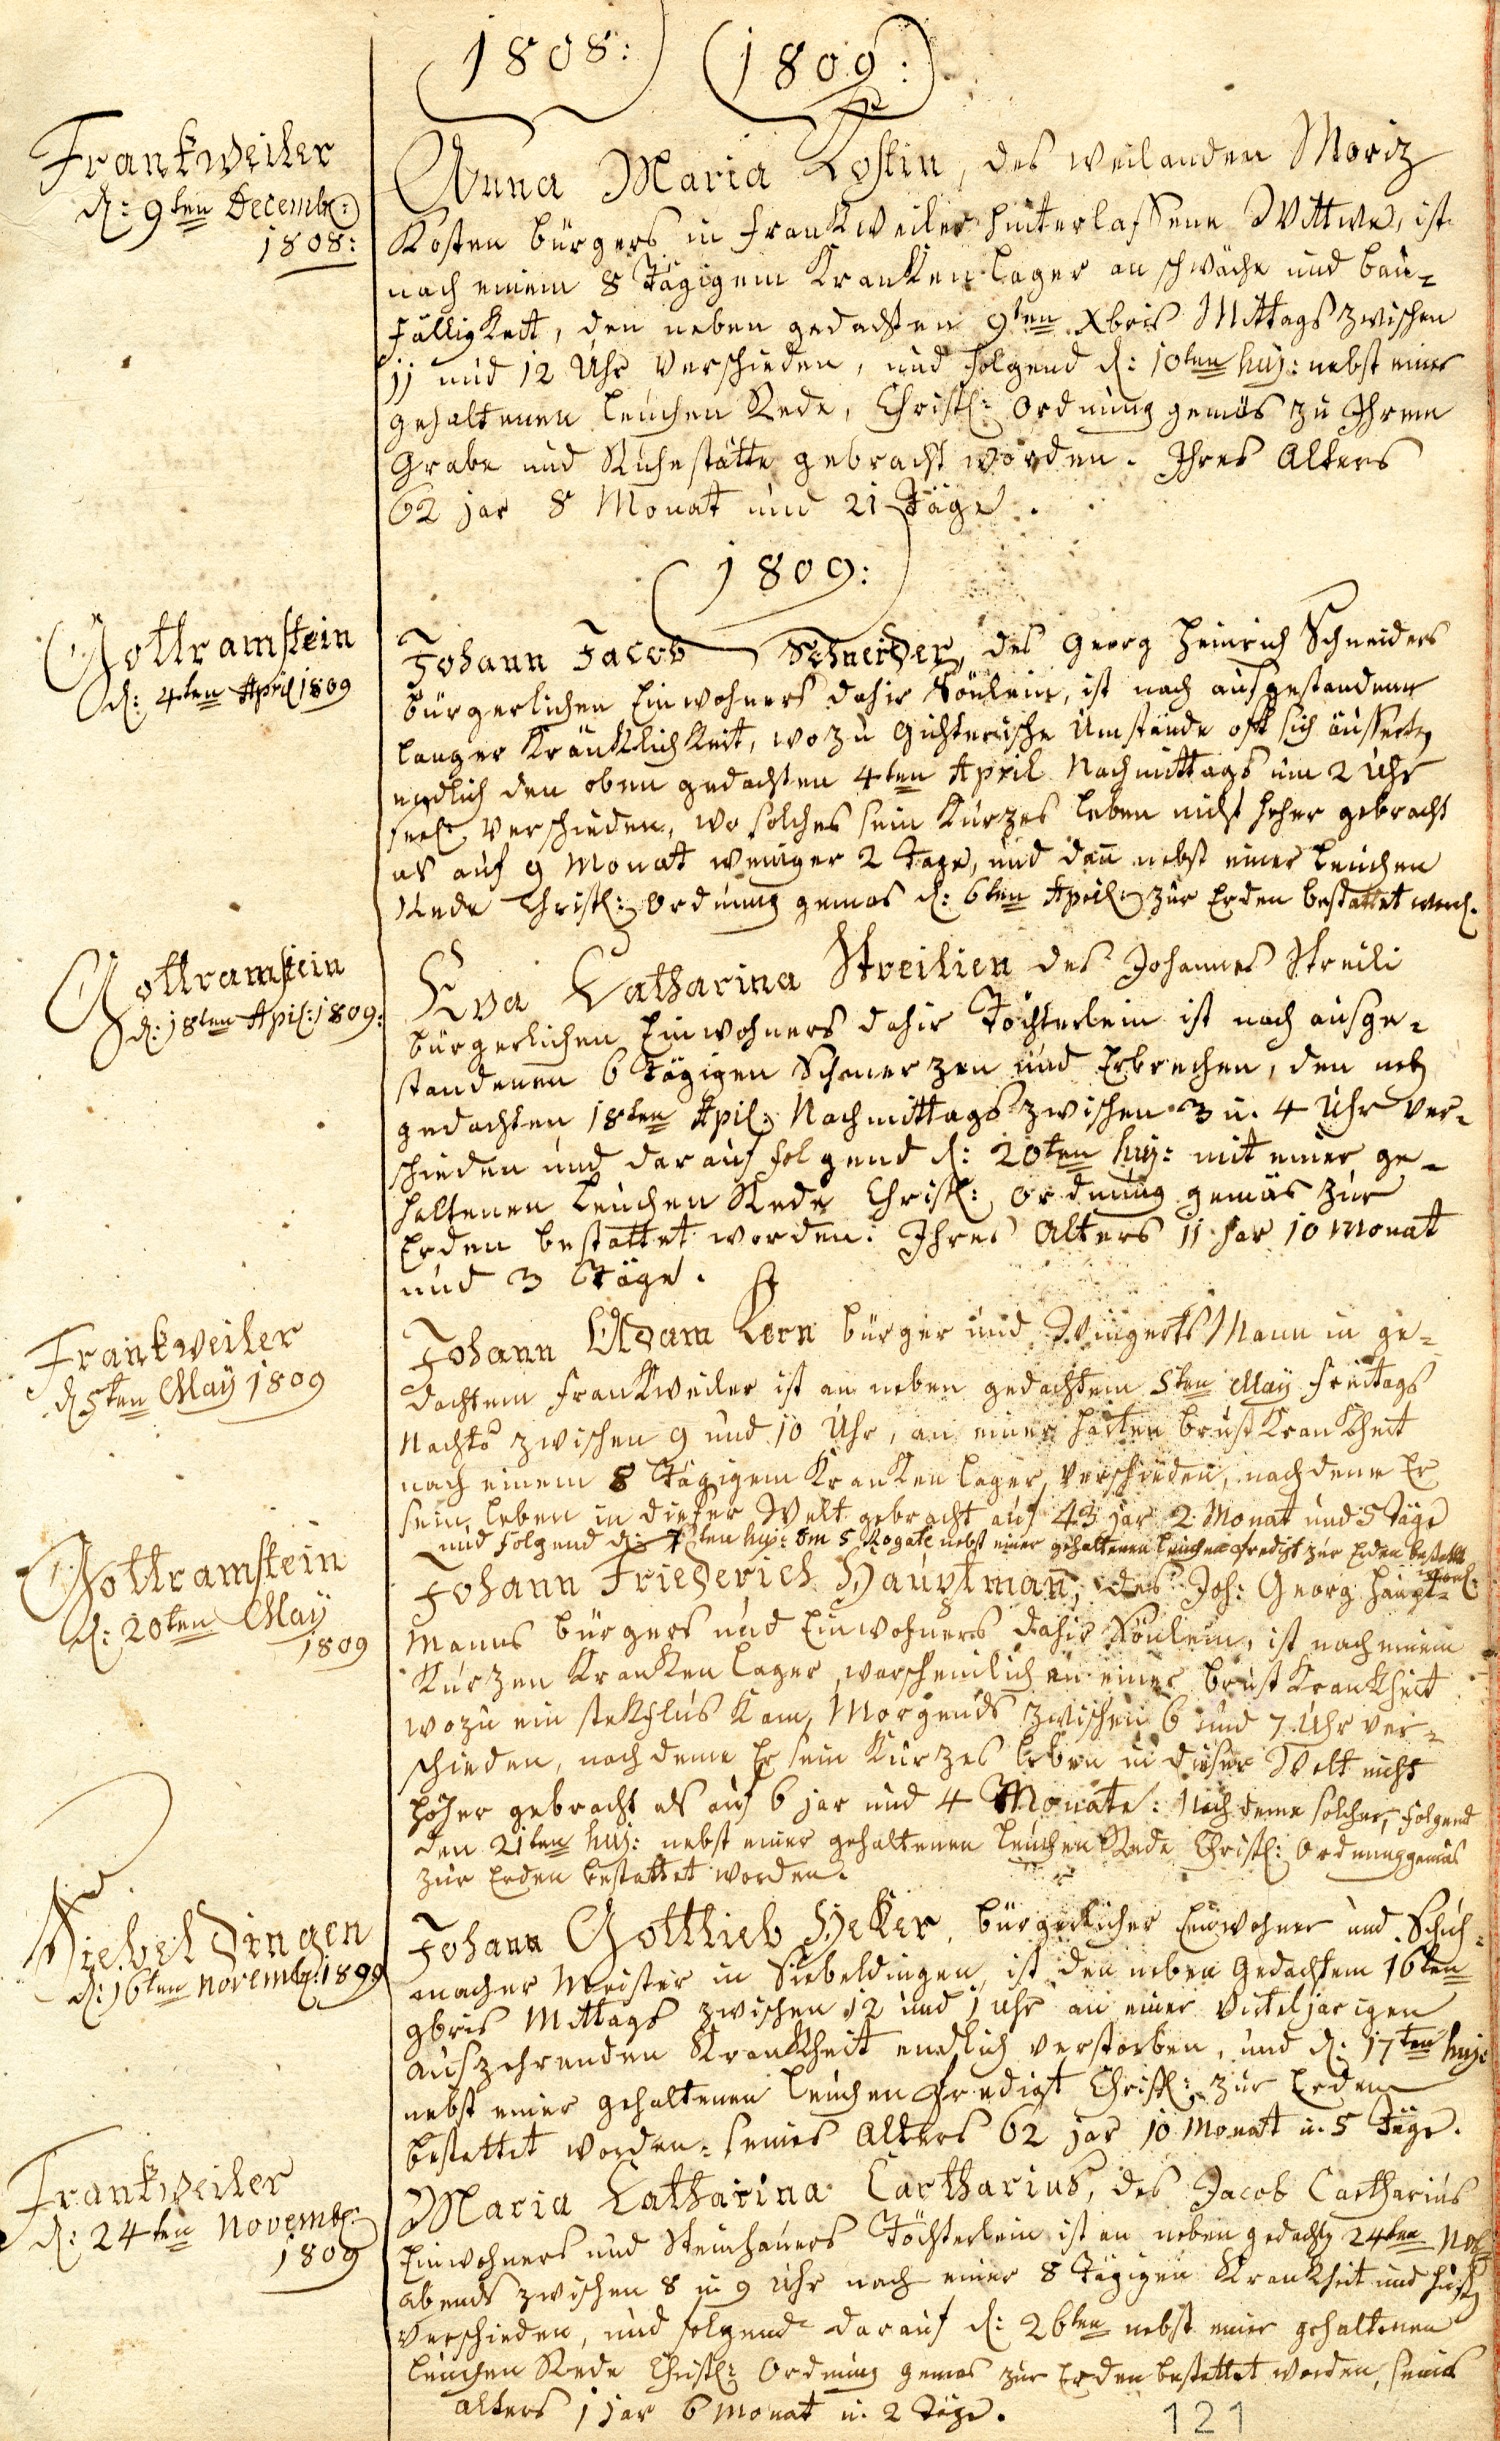 1808: 1809:
Frankweiler
d: 9ten Decembr:
1808:
Anna Maria Kostin, des weilanden Moriz
Kosten bürgers in Frankweiler hinterlassene Wittwe, ist
nach einem 8 Tägigem Kranken lager an schwäche und bau-
fälligkeit, den neben gedachten 9ten Xbris Mittags zwischen
11 und 12 Uhr verschieden, und folgend d: 10ten huj: nebst einer
gehaltenen leuchen Rede, Christl: Ordnung gemäs zu Ihrem
Grabe und Ruhestätte gebracht worden. Ihres Alters
62 jar 8 Monat und 21 Täge.
1809:
Gottramstein
d: 4ten April 1809
Johann Jacob Schneider, des Georg Heinrich Schneiders
bürgerlichen Einwohners dahir Sönlein, ist nach ausgestandener
langer Kränklichkeit, wozu Gichterische Umstände oft sich äusserten
endlich den oben gedachten 4ten April Nachmittags um 2 Uhr
seel: verschieden, wo solches sein Kurzes leben nicht hoher gebracht
als auf 9 Monat weniger 2 Tage, und dan nebst einer leuchen
Rede Christl: Ordnung gemäs d: 6ten April: zur Erden bestattet word:
Gottramstein
d: 18ten Apil: 1809:
Eva Catharina Streilien des Johannes Streili
bürgerlichen Einwohners dahir Töchterlein ist nach ausge-
standenen 6 Tägigen Schmerzen und Erbrechen, den neb
gedachten 18ten Apil: Nachmittags zwischen 3 u. 4 Uhr ver-
schieden und darauf folgend d: 20ten huj: mit einer ge-
haltenen leuchen Rede Christl: Ordnung gemäs zur
Erden bestattet worden: Ihres Alters 11 jar 10 Monat
und 3 Täge.
Frankweiler
d 5ten May 1809
Johann Adam Kern bürger und Wingerts Mann in ge-
dachtem Frankweiler ist an neben gedachtem 5ten May Freitags
Nachts zwischen 9 und 10 Uhr, an einer harten brust Krankheit
nach einem 8 Tägigem Kranken lager, verschieden, nach deme Er
sein leben in dieser Welt gebracht auf 43 jar 2 Monat und 5 Täge
und folgend d: 7ten huj: Dm 5 Rogate nebst einer gehaltenen leuchen Predigt zur Erden bestattet
word:
Gottramstein
d: 20ten May
1809
Johann Friederich Hauptman, des Joh: Georg Haupt-
manns bürgers und Einwohners dahir Sönlein, ist nach einem
Kurzen Kranken lager, warscheinlich an einer brust Krankheit
wozu ein stekflus kam, Morgends zwischen 6 und 7 Uhr ver-
schieden, nach deme Er sein Kurzes leben in dieser Welt nicht
höher gebracht als auf 6 jar und 4 Monate: Nach deme solcher, folgend
den 21ten huj: nebst einer gehaltenen leuchen Rede Christl: Ordnung gemäs
zur Erden bestattet worden.
Siebeldingen
d: 16ten novembr: 1809
Johann Gottlieb Heker, bürgerlicher Einwohner und Schuh-
macher Meister in Siebeldingen, ist den neben Gedachtem 16ten
9bris Mittags zwischen 12 und 1 Uhr an einer Vierteljarigen
auszehrenden Krankheit endlich verstorben, und d: 17ten huj:
nebst einer gehaltenen leuchen Predigt Christl: zur Erden
bestattet worden: seines Alters 62 jar 10 Monat u. 5 Täge.
Frankweiler
d: 24ten novembr:
1809
Maria Catharina Cartharius, des Jacob Cartharius
Einwohners und Steinhauers Töchterlein ist an neben gedachten 24ten Nov:
abends zwischen 8 u 9 Uhr nach einer 8 Tägigen Krankheit und husten
verschieden, und folgend darauf d: 26ten nebst einer gehaltenen
leuchen Rede Christl: Ordnung gemäs zur Erden bestattet worden, seines
alters 1 jar 6 Monat u. 2 Täge.
121